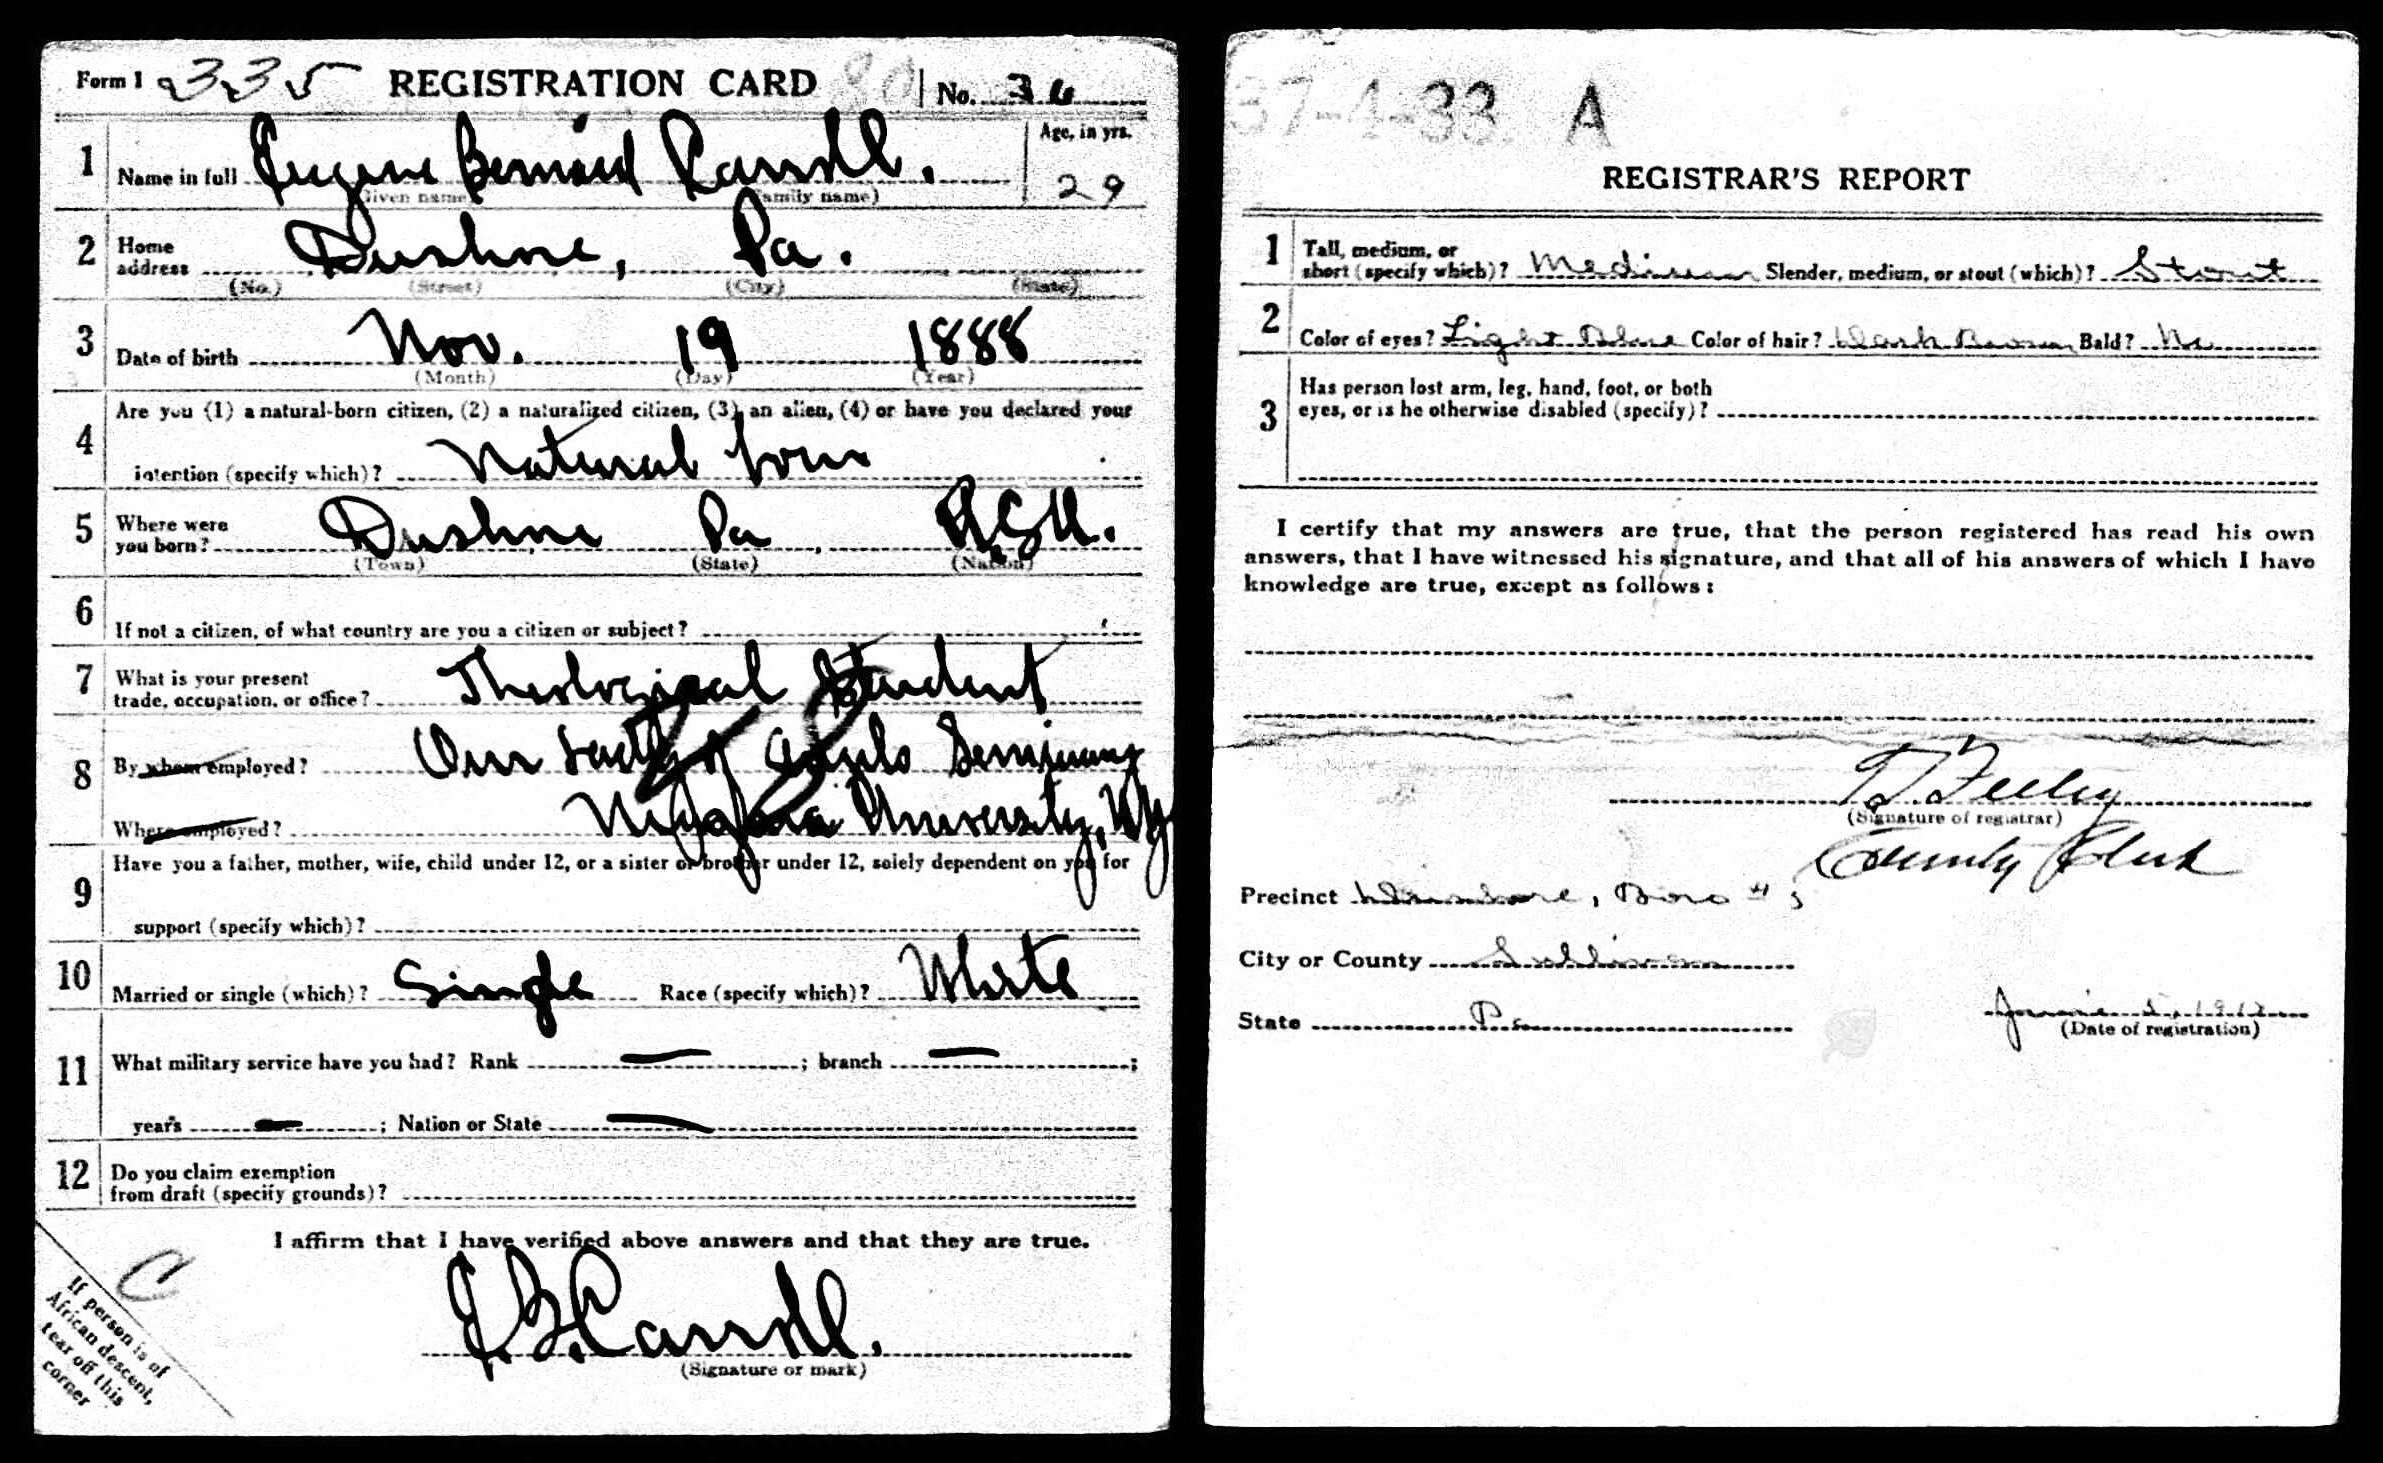 Form 1 335 REGISTRATION CARD No. 36
1 Name in full Eugene Bernard Carroll. Age, in yrs. 29
(Given name) (Family name)
2 Home address Dushore, Pa.
(No.) (Street) (City) (State)
3 Date of birth Nov. 19 1888
(Month) (Day) (Year)
4 Are you (1) a natural-born citizen, (2) a naturalized citizen, (3) an alien, (4) or have you declared your
intention (specify which)? Natural born
5 Where were you born? Dushore Pa U.S.A.
(Town) (State) (Nation)
6 If not a citizen, of what country are you a citizen or subject?
7 What is your present
trade, occupation, or office? Theological Student
8 By whom employed? Our Lady of Angels Seminary
Where employed? Niagara University, N.Y.
9 Have you a father, mother, wife, child under 12, or a sister or brother under 12, solely dependent on you for
support (specify which)?
10 Married or single (which)? Single Race (specify which)? White
11 What military service have you had? Rank — ; branch — ;
years — ; Nation or State —
12 Do you claim exemption
from draft (specify grounds)?
I affirm that I have verified above answers and that they are true.
E. B. Carroll.
(Signature or mark)
C
If person is of
African descent,
tear off this
corner
37-4-33 A
REGISTRAR'S REPORT
1 Tall, medium, or
short (specify which)? Medium Slender, medium, or stout (which)? Stout
2 Color of eyes? Light Blue Color of hair? Dark Brown Bald? No
3 Has person lost arm, leg, hand, foot, or both
eyes, or is he otherwise disabled (specify)?
I certify that my answers are true, that the person registered has read his own
answers, that I have witnessed his signature, and that all of his answers of which I have
knowledge are true, except as follows:
Feeley
(Signature of registrar)
County Clerk
Precinct Dushore, Boro
City or County Sullivan
State Pa
June 5, 1917
(Date of registration)